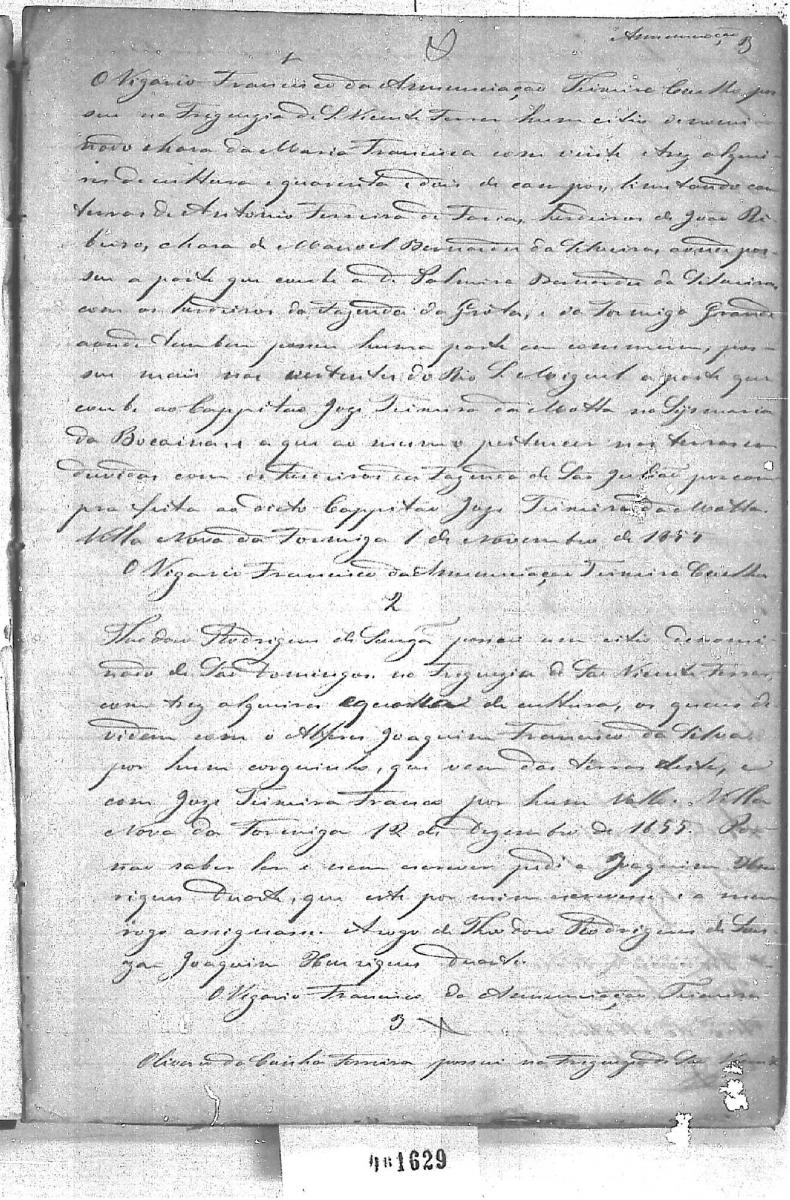 Annunciação 3
1
O Vigario Francisco da Annunciação Teixeira Coelho, pos
sue na Freguezia de S. Vicente Ferrer hum citio denomi
nado chara da Maria Francisca com vinte e trez alquei
res de cultura e quarenta e dois de campos, limitando com
terras de Antonio Ferreira de Faria, herdeiros de João Ri
beiro, chara de Manoel Bernardes da Silveira, aonde pos-
sue a parte que coube a D. Palmira Bernardes da Silveira,
com os herdeiros da Fazenda da Grota, e da Formiga Grande
aonde tambem possue huma parte em commum, pos-
sue mais nas vertentes do Rio S. Miguel a parte que
coube ao Cappitão Joze Teixeira da Motta na Sysmaria
da Bocaina e a que ao mesmo pertencer nas terras em
duvidas com os herdeiros da Fazenda de São Julião por com
pra feita ao dicto Cappitão Joze Teixeira da Motta.
Villa Nova da Formiga 1 de Novembro de 1855
O Vigario Francisco da Annunciação Teixeira Coelho
2
Theodoro Rodrigues de Souza possue um citio denomi
nado de São Domingos na Freguezia de São Vicente Ferrer,
com trez alqueires e quarta de cultura, os quaes di
videm com o Alferes Joaquim Francisco da Silva
por hum corguinho, que vem das terras deste, e
com Joze Teixeira Franco por hum Vallo. Villa
Nova da Formiga 12 de Dezembro de 1855. Por
nao saber ler e nem escrever pedi a Joaquim Hen
riques Duarte, que este por mim escrevesse e a meu
rogo assignasse. Arogo de Theodoro Rodrigues de Sou-
za Joaquim Henriques Duarte.
O Vigario Francisco da Annunciação Teixeira
3
Oliverio da Cunha Ferreira possui na Freguezia de São Vicente
1629